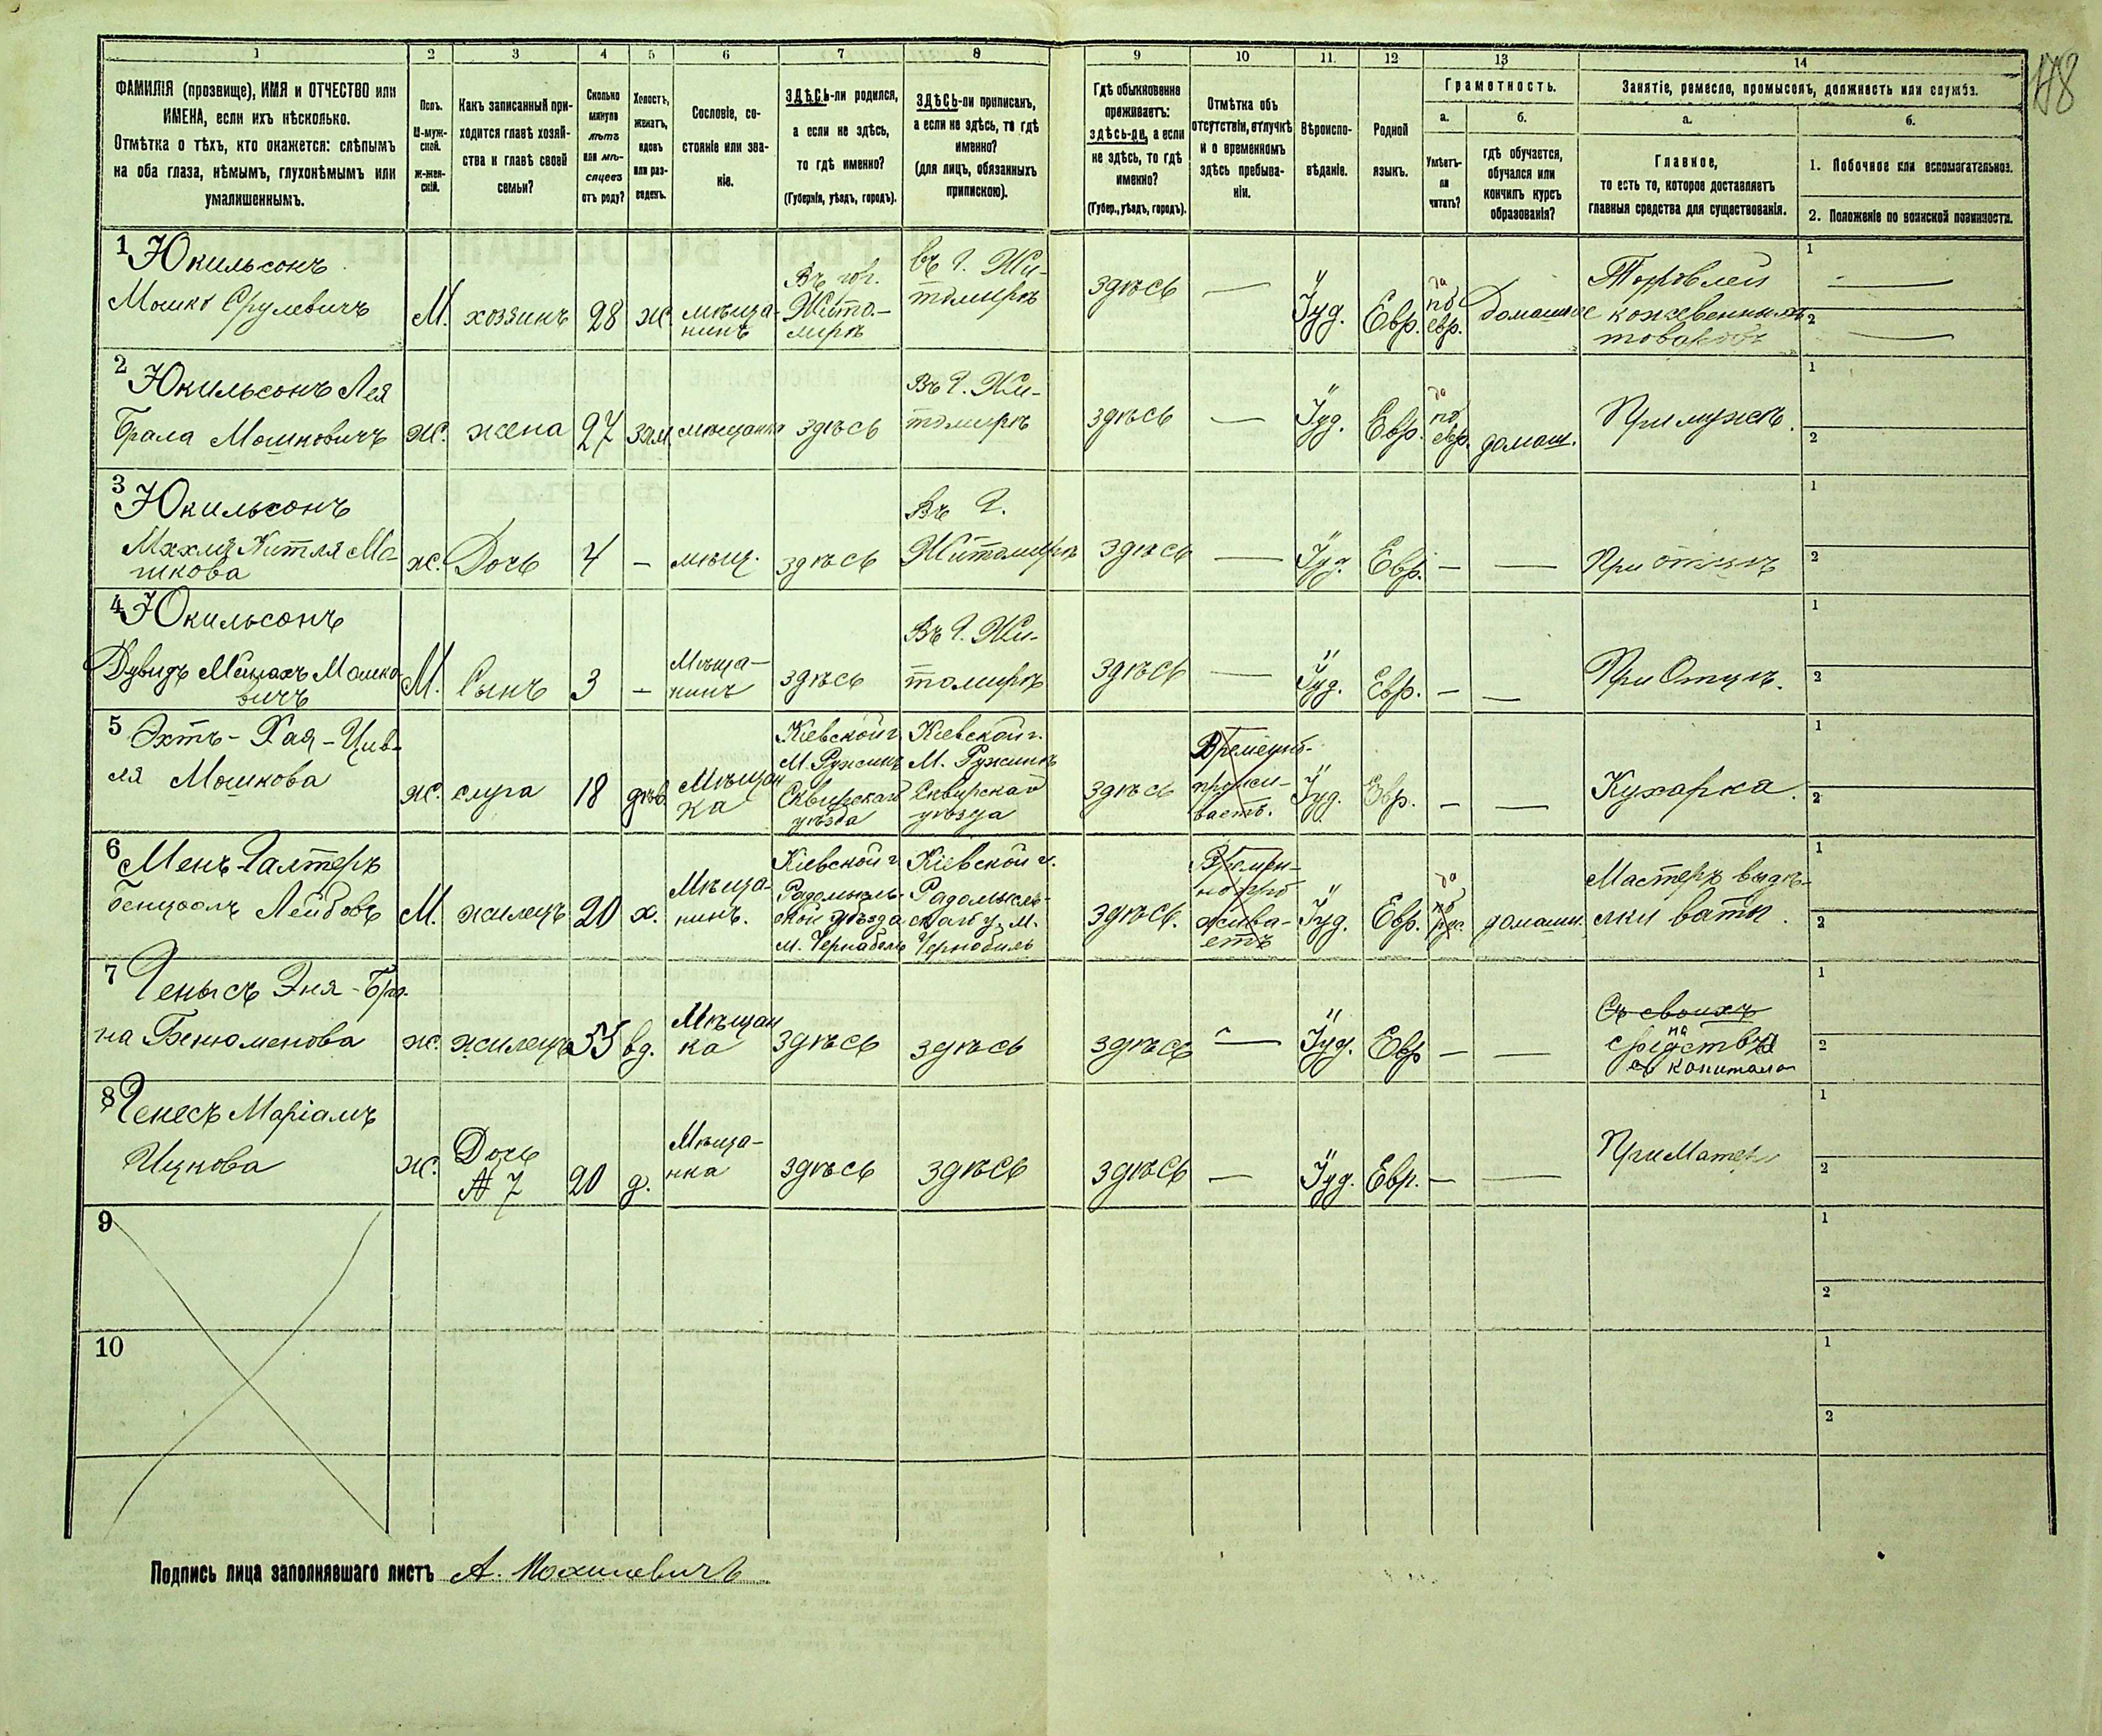 178
1 2 3 4 5 6 7 8 9 10 11 12 13 14
ФАМИЛІЯ (прозвище), ИМЯ и ОТЧЕСТВО или
ИМЕНА, если ихъ нѣсколько.
Отмѣтка о тѣхъ, кто окажется: слѣпымъ
на оба глаза, нѣмымъ, глухонѣмымъ или
умалишеннымъ.
Полъ.
М-муж-
ской.
Ж-жен-
скій.
Какъ записанный при-
ходится главѣ хозяй-
ства и главѣ своей
семьи?
Сколько
минуло
лѣтъ
или мѣ-
сяцевъ
отъ роду?
Холостъ,
женатъ,
вдовъ
или раз-
веденъ.
Сословіе, со-
стояніе или зва-
ніе.
ЗДѢСЬ-ли родился,
а если не здѣсь,
то гдѣ именно?
(Губернія, уѣздъ, городъ).
ЗДѢСЬ-ли приписанъ,
а если не здѣсь, то гдѣ
именно?
(для лицъ, обязанныхъ
припискою).
Гдѣ обыкновенно
проживаетъ:
здѣсь-ли, а если
не здѣсь, то гдѣ
именно?
(Губер., уѣздъ, городъ).
Отмѣтка объ
отсутствіи, отлучкѣ
и о временномъ
здѣсь пребыва-
ніи.
Вѣроиспо-
вѣданіе.
Родной
языкъ.
Грамотность.
а.
Умѣетъ-
ли
читать?
б.
гдѣ обучается,
обучался или
кончилъ курсъ
образованія?
Занятіе, ремесло, промыселъ, должность или служба.
а.
Главное,
то есть то, которое доставляетъ
главныя средства для существованія.
б.
1. Побочное или вспомогательное.
2. Положеніе по воинской повинности.
1 Юкильсонъ
Мошко Срулевичъ
М.
хозяинъ
28
ж.
мѣща-
нинъ
Въ гор.
Жито-
мирѣ
въ г. Жи-
томирѣ
здѣсь
—
Іуд.
Евр.
да
по
евр.
Домашнее
Торговлей
кожевенными
товаромъ
1 —
2 —
2 Юкильсонъ Лея
Брала Мошковичъ
ж.
жена
27
зам
мѣщанка
здѣсь
Въ г. Жи-
томирѣ
здѣсь
—
Іуд.
Евр.
да
по
евр.
домаш.
При мужѣ.
1
2
3 Юкильсонъ
Махля Китля Мо-
шкова
ж.
Дочь
4
—
мѣщ.
здѣсь
Въ г.
Житомирѣ
здѣсь
—
Іуд.
Евр.
—
—
При отцѣ
1
2
4 Юкильсонъ
Дувидъ Мошко
вичъ
М.
Сынъ
3
—
Мѣща-
нинъ
здѣсь
Въ г. Жи-
томирѣ
здѣсь
—
Іуд.
Евр.
—
—
При Отцѣ.
1
2
5 Эхтъ - Хая - Цив-
ля Мошкова
ж.
слуга
18
дѣв.
Мѣщан
ка
Кіевской г.
М. Ружинъ
Сквирскаго
уѣзда
Кіевской г.
М. Ружинъ
Сквирскаго
уѣзда
здѣсь
Временно-
прожи-
ваетъ.
Іуд.
Евр.
—
—
Кухарка.
1
2
6 Менъ-Галтеръ
Бенціонъ Лейбовъ
М.
жилецъ
20
х.
Мѣща-
нинъ.
Кіевской г.
Радомысль-
ской уѣзда
м. Чернабель
Кіевской г.
Радомысль-
скаго у. М.
Чернобиль
здѣсь.
Времен-
но про
жива-
етъ
Іуд.
Евр.
да
по
рус.
домашн.
Мастеръ выдѣ-
лки ваты.
1
2
7 Генысъ Эня - Брай-
на Бенюменова
ж.
жилецъ
55
вд.
Мѣщан
ка
здѣсь
здѣсь
здѣсь
—
Іуд.
Евр
—
—
Съ своихъ
на
средства
съ капитала
1
2
8 Генесъ Маріамъ
Ицкова
ж.
Дочь
№ 7
20
д.
Мѣща-
нка
здѣсь
здѣсь
здѣсь
—
Іуд.
Евр.
—
—
При Матери
1
2
9
1
2
10
1
2
Подпись лица заполнявшаго листъ А. Мохилевичъ